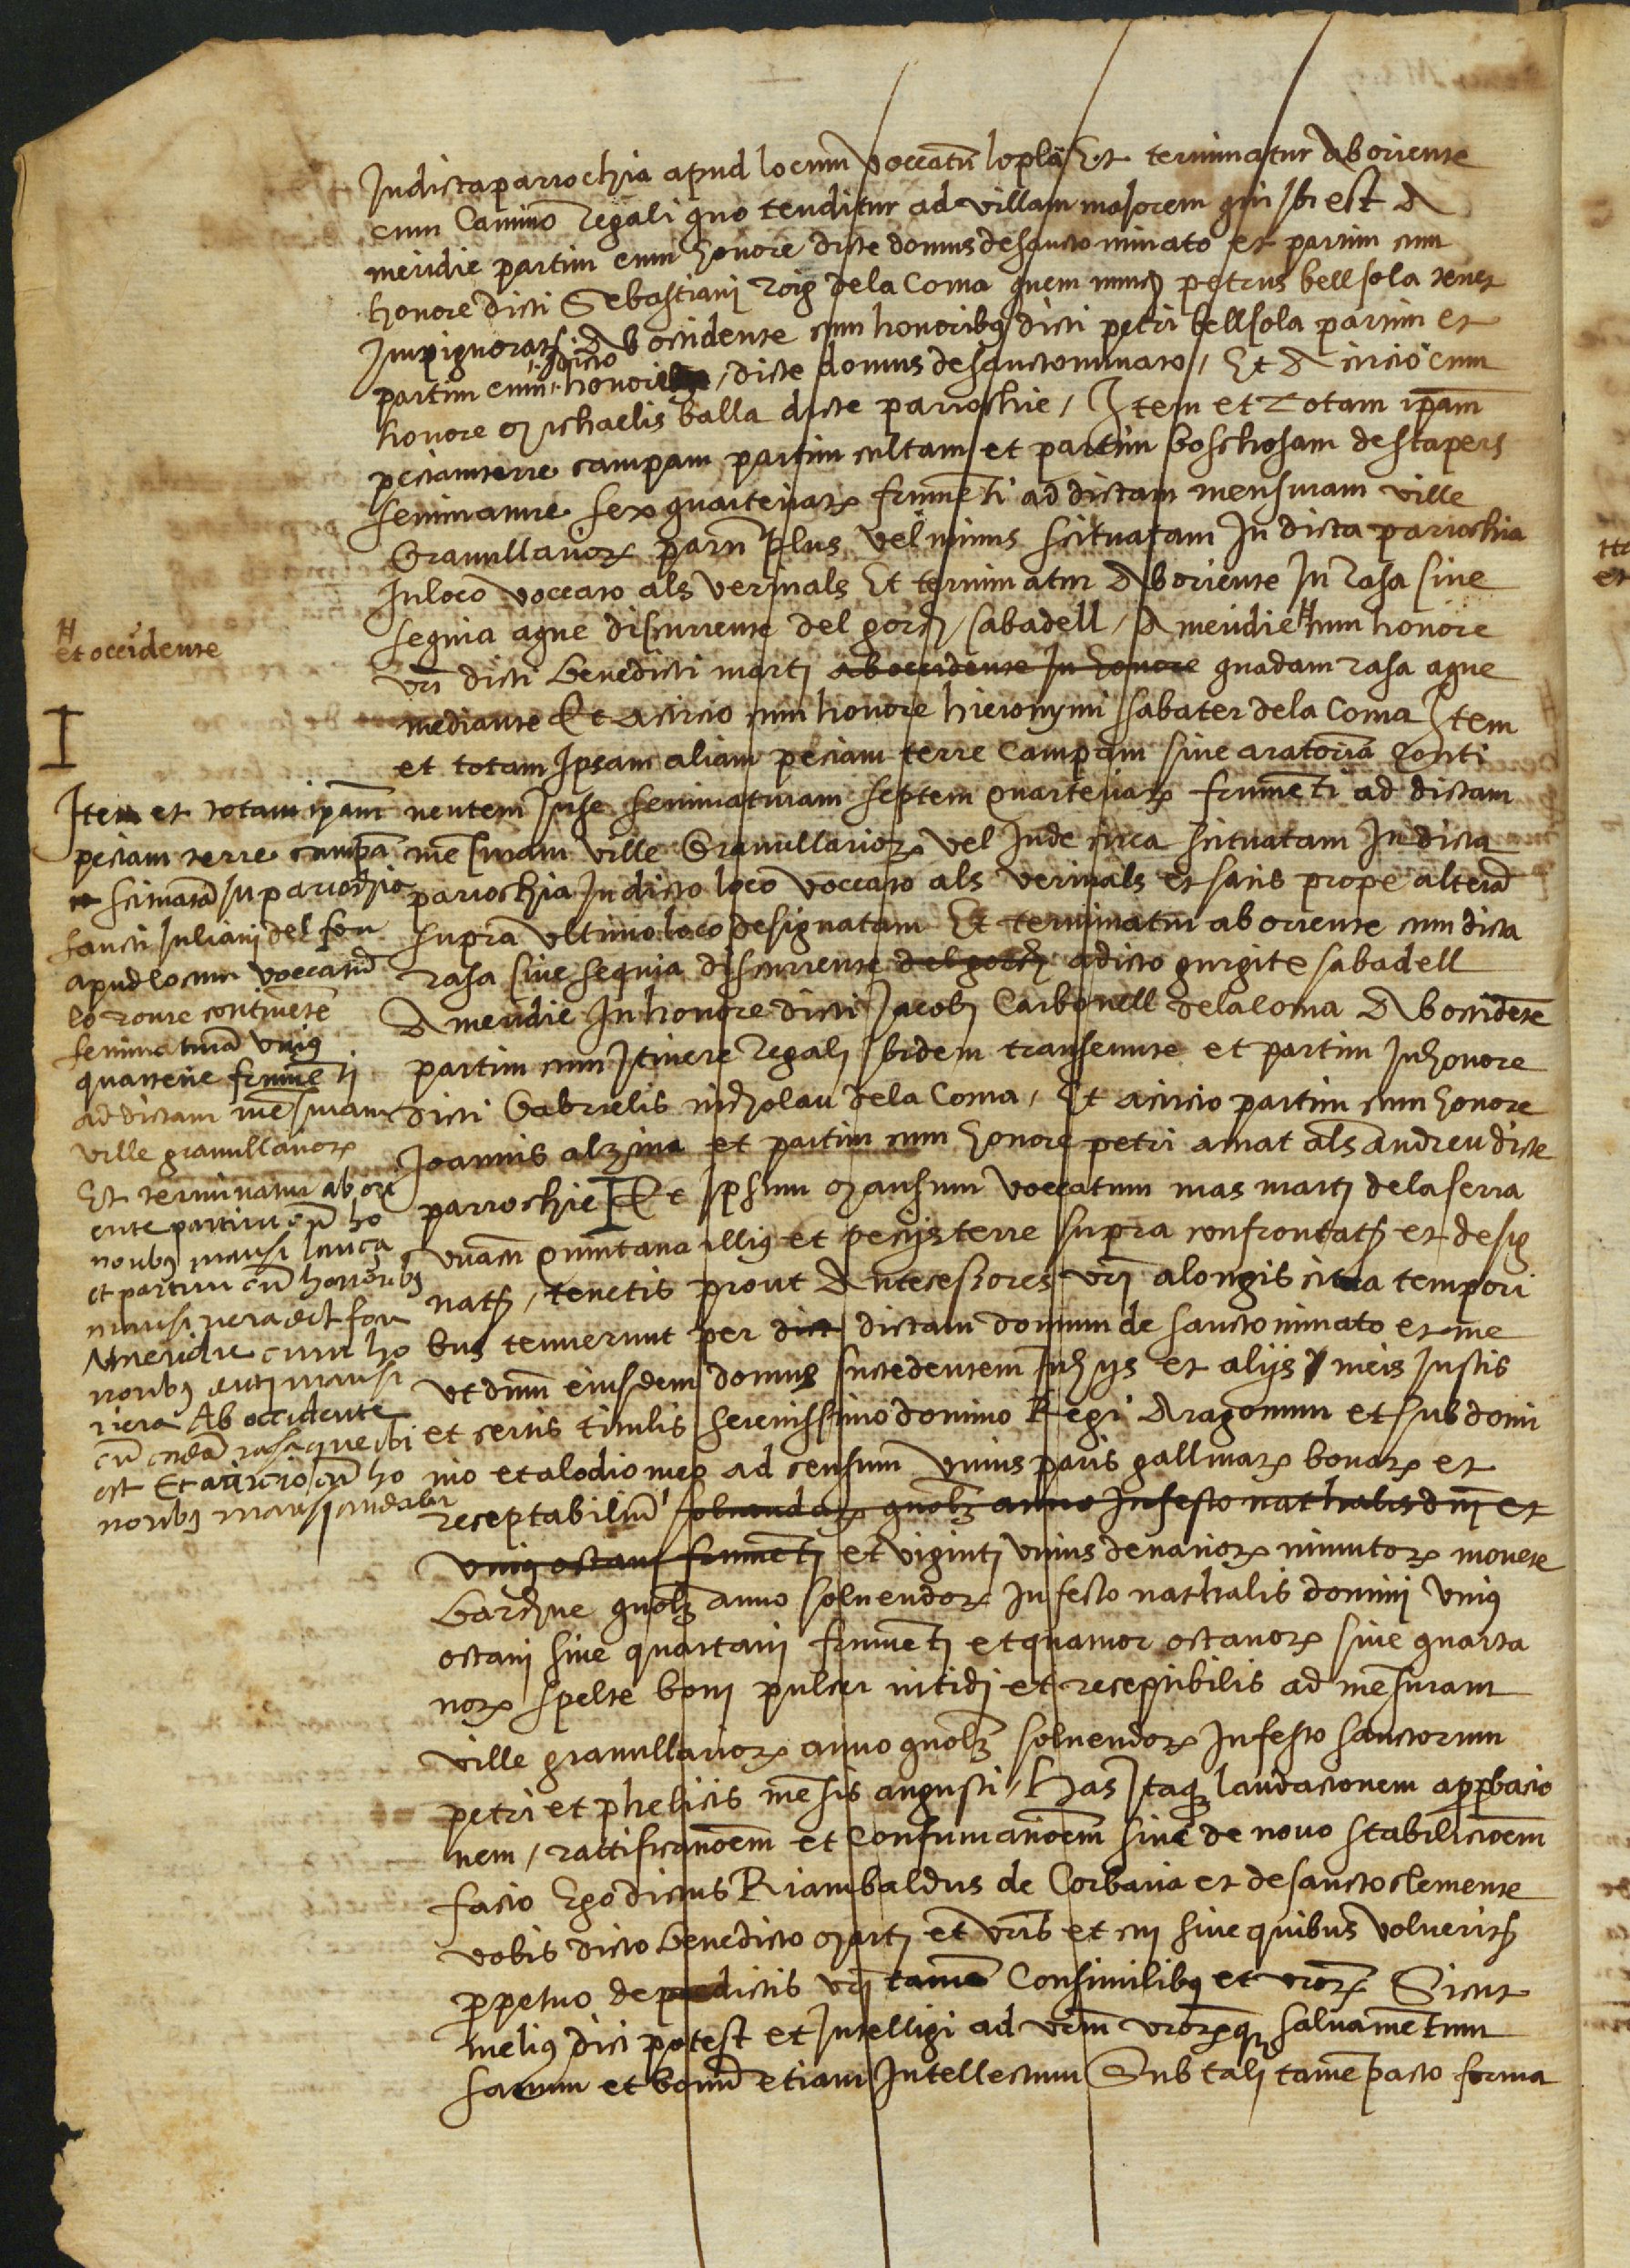 In dicta parrochia apud locum voccatũ lo pla Et terminatur Ab oriente
cum Camino regali quo tenditur ad villam majorem qui ibi est A
meridie partim cum honore dicte domus de sancto minato et partim cum
honore dicti Sebastianj roig dela Coma quem nunch petrus bellsola tenet
Impignorat. Ab occidente cum honoribus dicti petri bellsola partim et
dicto
partim cum honore / dicte domus de sancto minato / Et A circio cum
honore Michaelis balla dicte parrochie / Item et totam ipam̃
peciam terre campam partim cultam et partim boschosam de stapers
seminature sex quarteriar̃ frumẽti ad dictam mensuram ville
Granullarior̃ parũ plus vel minus scituatam In dicta parrochia
In loco voccato als verinals Et terminatur Ab oriente In rasa sive
sequia aque discurrente del gorch / sabadell / A meridie H cum honore
vr̃i dicti benedicti martj ab occidente In honore quadam rasa aque
mediante Et A circio cum honore hieronymi sabater dela Coma Item
et totam Ipsam aliam peciam terre Campam sive aratoriã Conti
nentem In se seminaturam septem quarteriar̃ frumẽti ad dictam
mẽsuram ville Granullarior̃ vel Inde circa scituatam In dicta
parrochia In dicto loco voccato als verinals et satis prope alterã
supra ultimo loco designatam Et terminatur ab oriente cum dicta
rasa sive sequia discurrente del gorch a dicto gurgite sabadell
A meridie In honore dicti Jacobi Carbonell dela Coma Ab occidẽte
partim cum Itinere regali Ibidem transeunte et partim In honore
dicti Gabrielis nicholau dela Coma / Et a circio partim cum honore
Joannis alzina et partim cum honore petri amat als andreu dicte
parrochie I Et Ipsum Mansum voccatum mas marti dela serra
unacũ quintana illiꝰ et pecijs terre supra confrontatis et desig
natis / tenetis prout Antecessores vr̃i a longis citra tempori
bus tenuerunt per dict dictam domum de sancto minato et me
ut dnm̃ eiusdem domus succedentem In hijs et alijs meis Justis
et certis titulis serenissimo domino Regi Aragonum et sub domi
nio et alodio meo ad censum unius paris gallinar̃ bonar̃ et
receptabiliũ solvendar̃ quolz anno In festo nathalis dnj̃ et
uniꝰ octani frumẽti et viginti unius denarior̃ minutor̃ monete
barchne quolz anno solvendor̃ In festo nathalis dominj uniꝰ
octani sive quartani frumẽti et quatuor octanor̃ sive quarta
nor̃ spelte bonj pulcri nitidj et receptibilis ad mẽsuram
ville granullarior̃ anno quolz solvendor̃ In festo sanctorum
petri et phelicis mẽsis augusti / Has Itaqz laudacionem approbacio
nem / rattificanoẽm et Confirmanoẽm sive de novo stabilicioẽm
facio Ego dictus Riambaldus de Corbaria et de sancto clemente
vobis dicto benedicto Martj et vr̃is et cuj sive quibus volueritis
perpetuo de predictis vr̃j tamẽ Consimilibus et vror̃ Sicut
meliꝰ dici potest et Intelligi ad vrm̃ vror̃qz salvamẽtum
sanum et bonũ etiam Intellectum Sub talj tamẽ pacto forma
H
et occidente
I
Item et totam ipam̃
peciam terre campã
scituatã In parrochia
sancti Julianj del fou
apud locum voccatũ
lo roure continẽtẽ
seminaturã uniꝰ
quarterie frumẽti
ad dictam mẽsuram
ville granullarior̃
Et terminatur ab ori
ente partim cũ ho
noribꝰ mansi lança
et partim cũ honoribꝰ
mansi riera del fou
A meridie cum ho
noribꝰ dicti mansi
riera Ab occidente
cũ quadã rasa que ibi
est Et a circio cũ ho
noribꝰ mansi